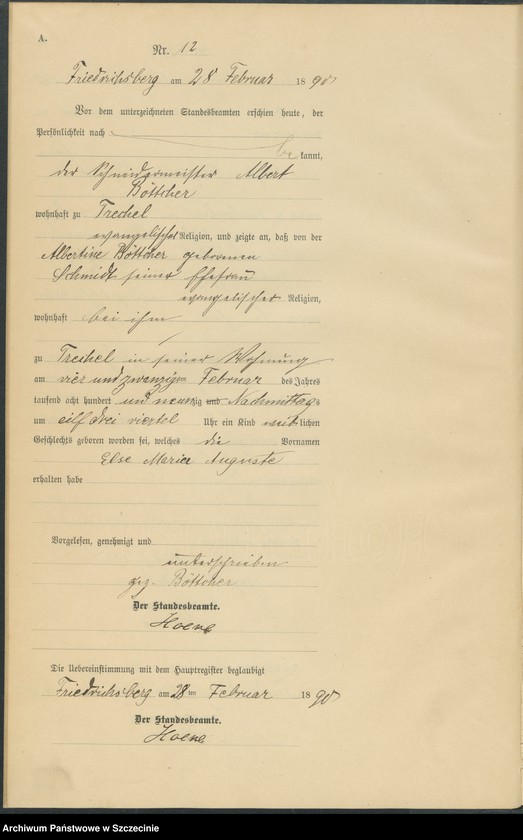 A.
Nr. 12
Friedrichsberg am 28 Februar 1890
Vor dem unterzeichneten Standesbeamten erschien heute, der
Persönlichkeit nach
be kannt,
der Schneidermeister Albert
Böttcher
wohnhaft zu Trechel
evangelischer Religion, und zeigte an, daß von der
Albertine Böttcher geborenen
Schmidt seiner Ehefrau
evangelischer Religion,
wohnhaft bei ihm
zu Trechel in seiner Wohnung
am vier und zwanzigsten Februar des Jahres
tausend acht hundert und neunzig und Nachmittags
um eilf drei viertel Uhr ein Kind weiblichen
Geschlechts geboren worden sei, welches die Vornamen
Else Marie Auguste
erhalten habe
Vorgelesen, genehmigt und
unterschrieben
gez. Böttcher
Der Standesbeamte.
Die Uebereinstimmung mit dem Hauptregister beglaubigt
Friedrichsberg am 28ten Februar 1890
Der Standesbeamte.
Archiwum Państwowe w Szczecinie